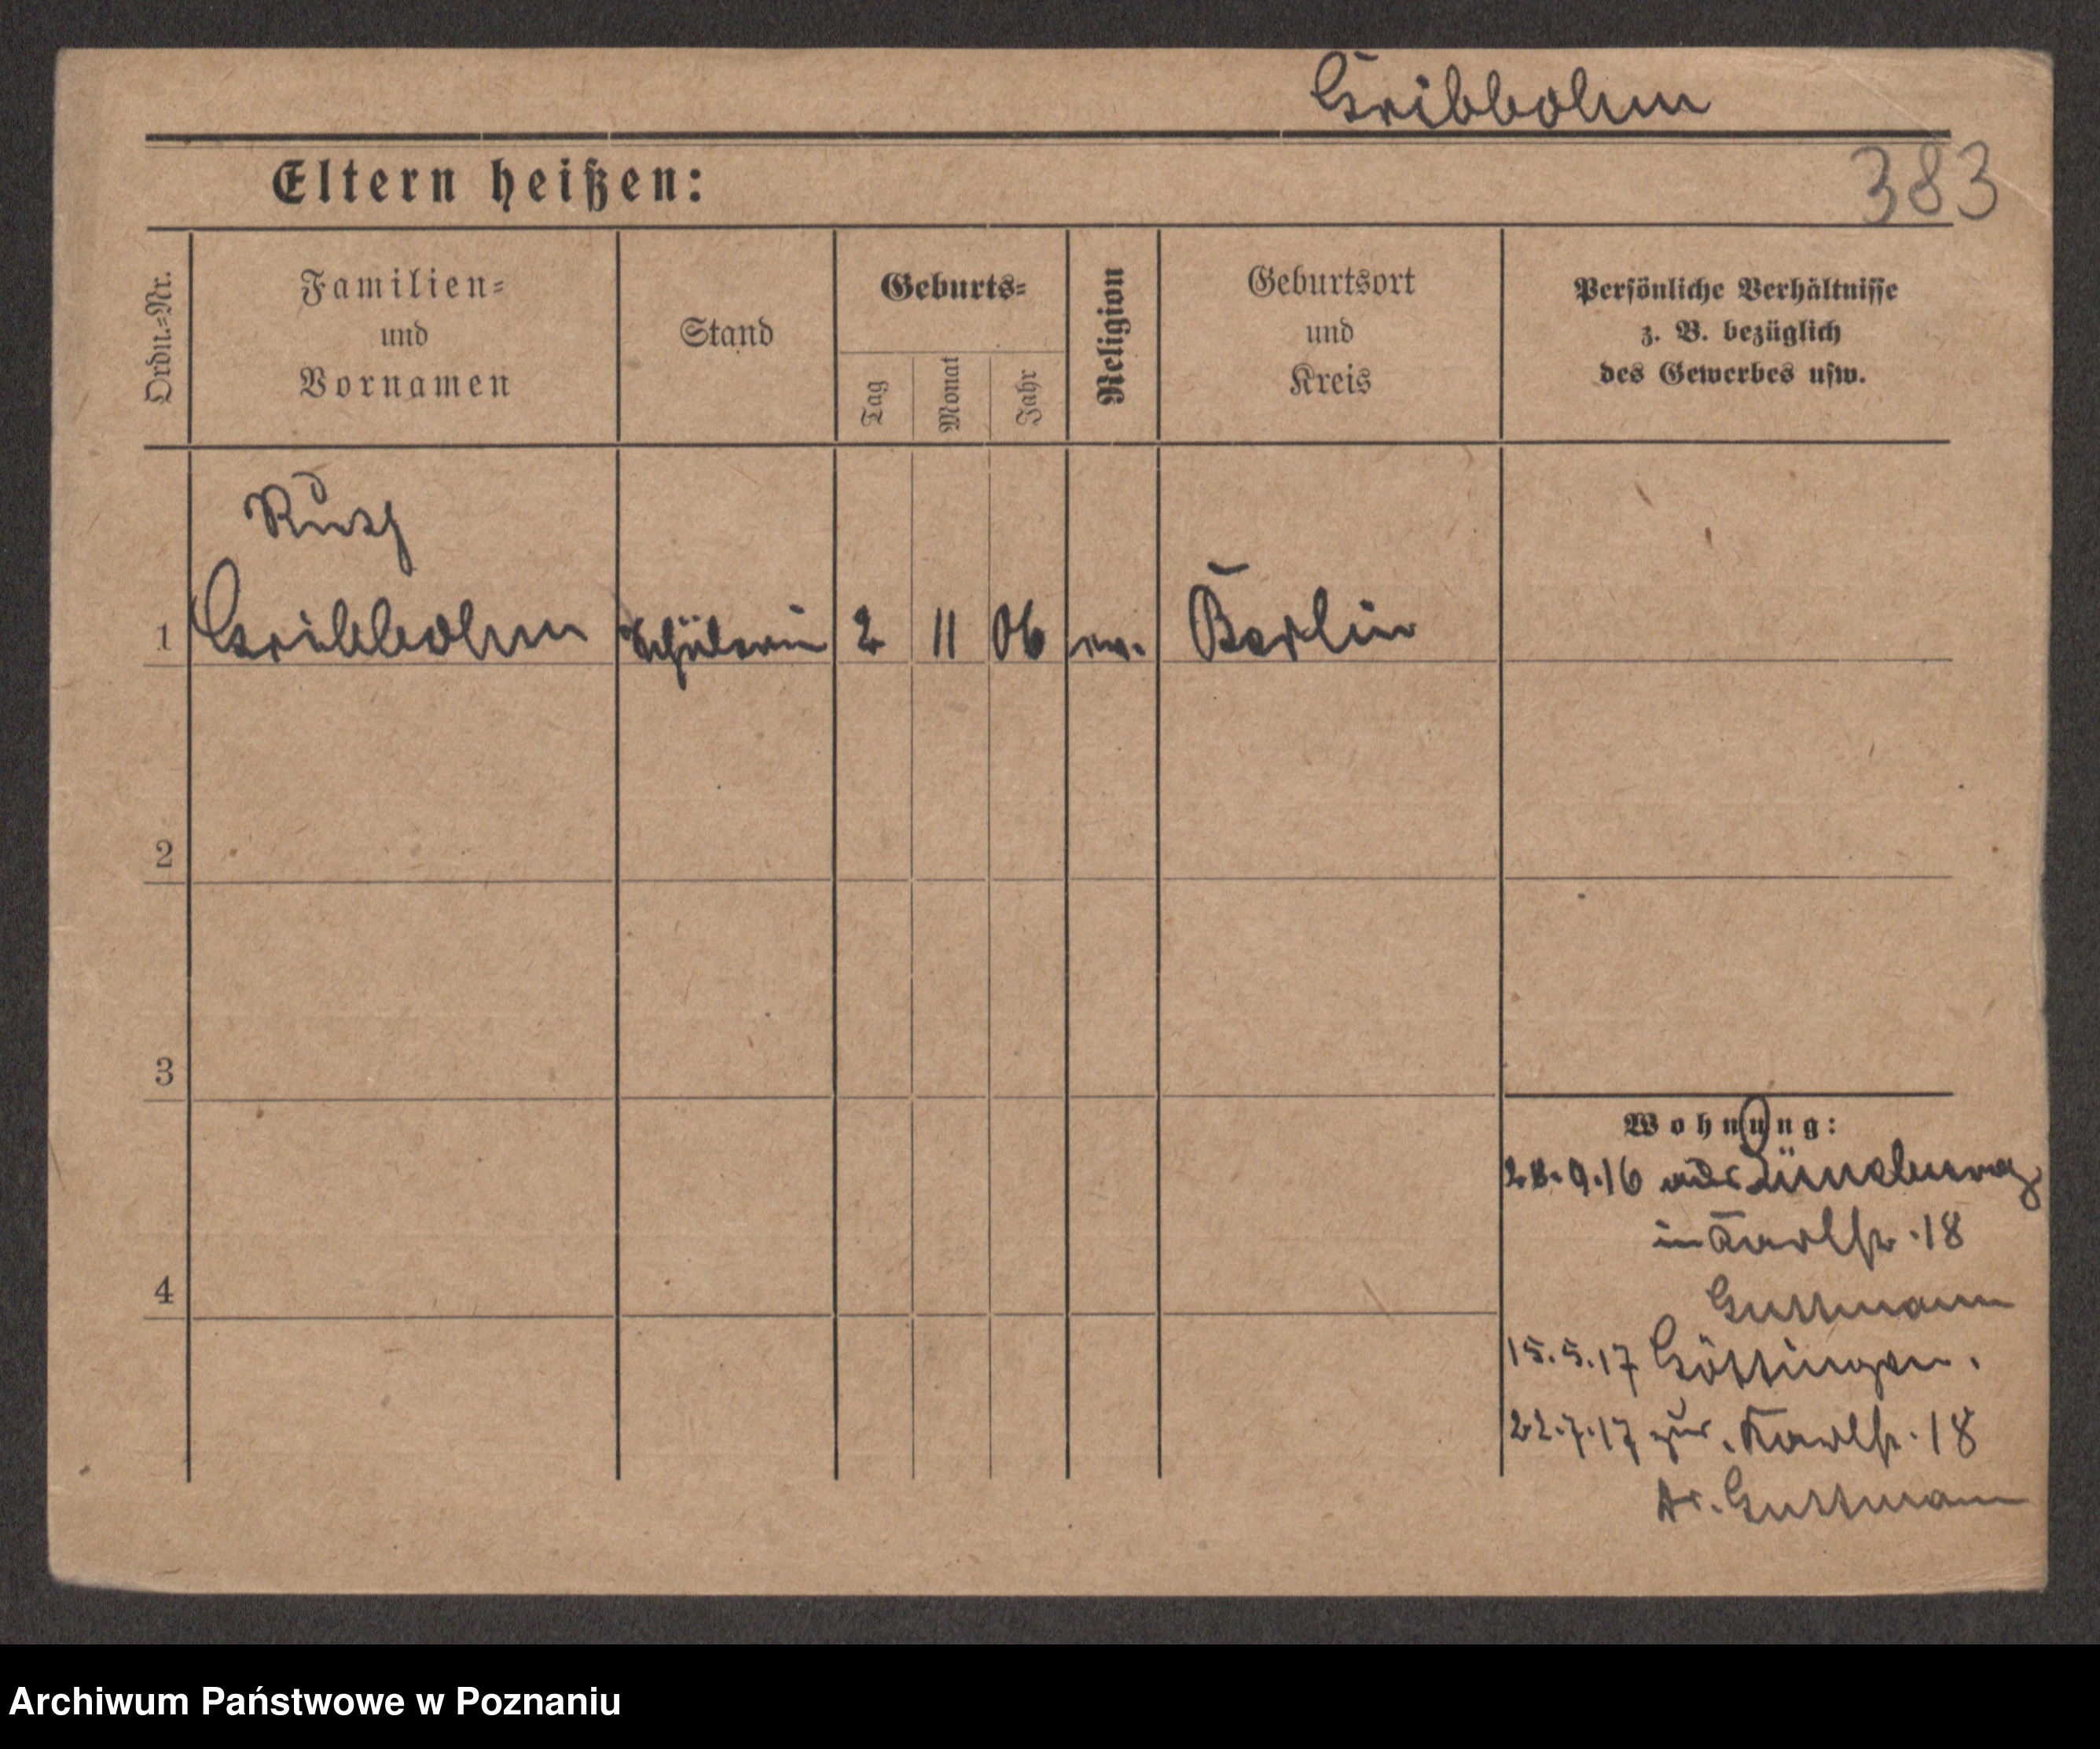 Gribbohm
383
Eltern heißen:
Ordn.-Nr.
Familien-
und
Vornamen
Stand
Geburts-
Tag
Monat
Jahr
Religion
Geburtsort
und
Kreis
Persönliche Verhältnisse
z. B. bezüglich
des Gewerbes usw.
Ruth
1 Gribbohm Schülerin 2 11 06 ev. Berlin
2
3
4
Wohnung:
28.9.16 aus Lüneburg
in Karlstr. 18
Guttmann
15.5.17 Göttingen.
22.7.17 zur. Karlstr. 18
Dr. Guttmann
Archiwum Państwowe w Poznaniu